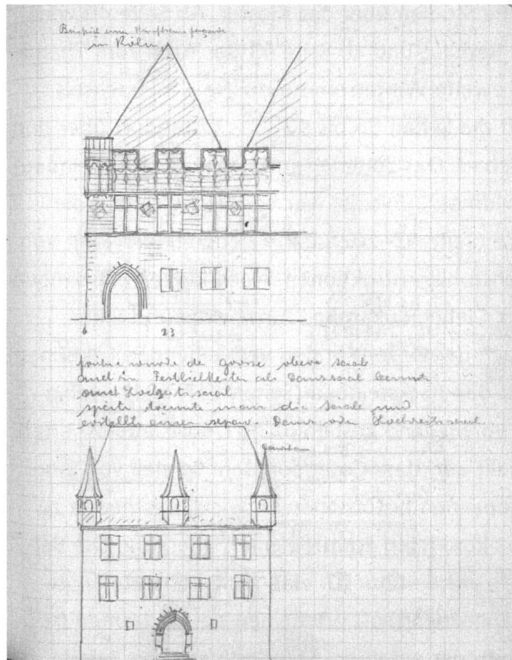 Beispiel einer
in Köln
23
früher wurde der grosse obere Saal
auch in Festlichkeiten als Tanzsaal benutzt
und Hochzeitssaal
später trennte man die Säle und
erstellte einen separ. Tanz oder Hochzeitssaal